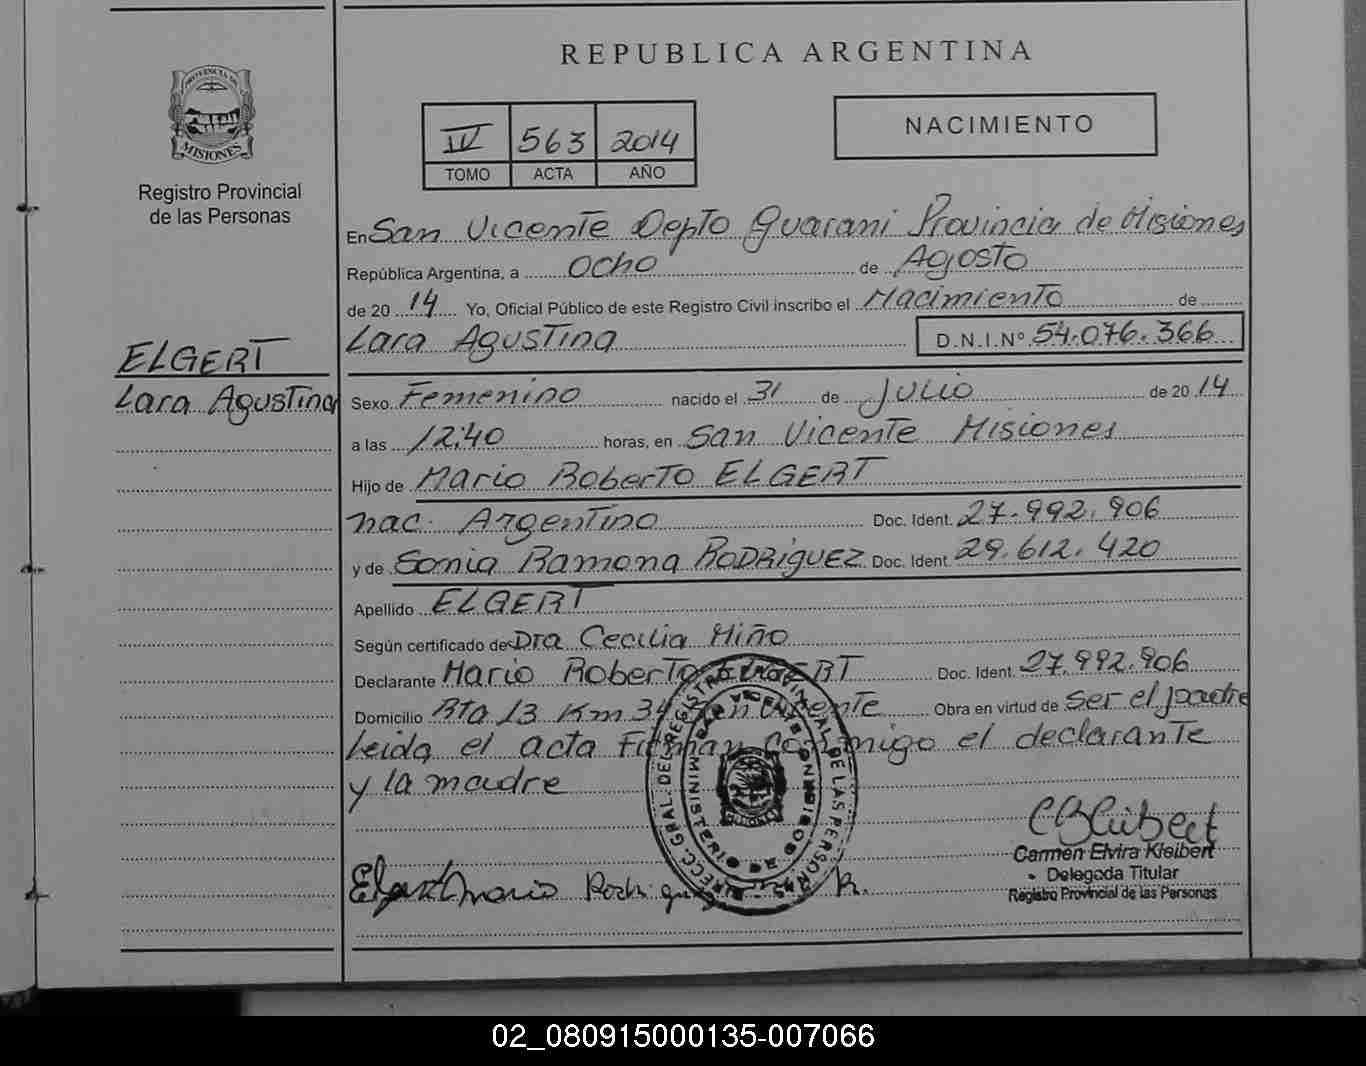 REPUBLICA ARGENTINA
PROVINCIA DE
MISIONES
Registro Provincial
de las Personas
IV 563 2014
TOMO ACTA AÑO
NACIMIENTO
En San Vicente Depto Guarani Provincia de Misiones
República Argentina, a Ocho de Agosto
de 2014 Yo, Oficial Público de este Registro Civil inscribo el Nacimiento de
Lara Agustina D.N.I.Nº 54.076.366
ELGERT
Lara Agustina
Sexo Femenino nacido el 31 de Julio de 2014
a las 12:40 horas, en San Vicente Misiones
Hijo de Mario Roberto ELGERT
nac. Argentino Doc. Ident. 27.992.906
y de Sonia Ramona RODRIGUEZ Doc. Ident. 29.612.420
Apellido ELGERT
Según certificado de Dra Cecilia Miño
Declarante Mario Roberto ELGERT Doc. Ident. 27.992.906
Domicilio Rta 13 Km 34 San Vicente Obra en virtud de ser el padre
Leida el acta Firman conmigo el declarante
y la madre
DIRECC. GRAL. DEL REGISTRO PROVINCIAL DE LAS PERSONAS
MINISTERIO DE GOBIERNO
SAN VICENTE
Carmen Elvira Kleibert
Delegada Titular
Registro Provincial de las Personas
Elgert Mario Rodriguez R.
02_080915000135-007066